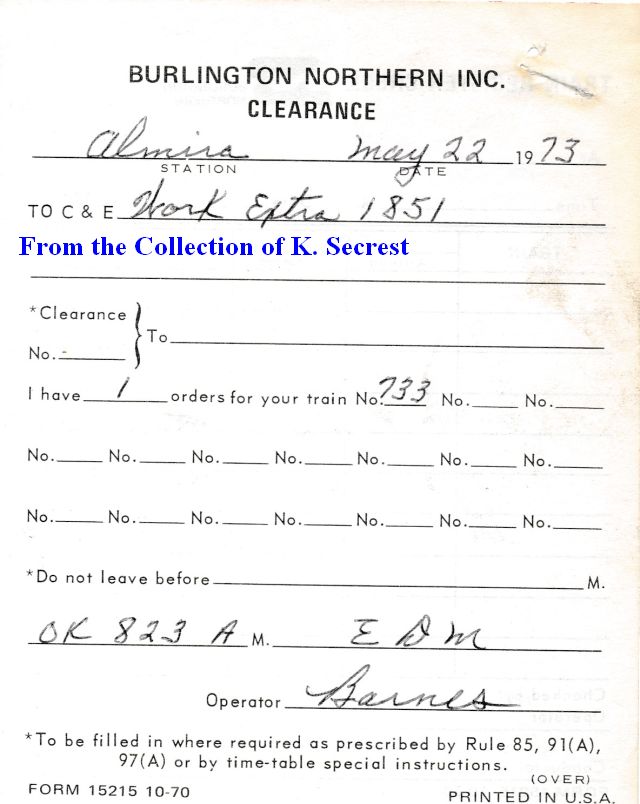 BURLINGTON NORTHERN INC.
CLEARANCE
Almira May 22 1973
STATION DATE
TO C & E Work Extra 1851
From the Collection of K. Secrest
*Clearance
No. To
I have 1 orders for your train No. 733 No. No.
No. No. No. No. No. No. No.
No. No. No. No. No. No. No.
*Do not leave before M.
OK 823 A M. E D M
Operator Barnes
*To be filled in where required as prescribed by Rule 85, 91(A),
97(A) or by time-table special instructions.
(OVER)
FORM 15215 10-70 PRINTED IN U.S.A.